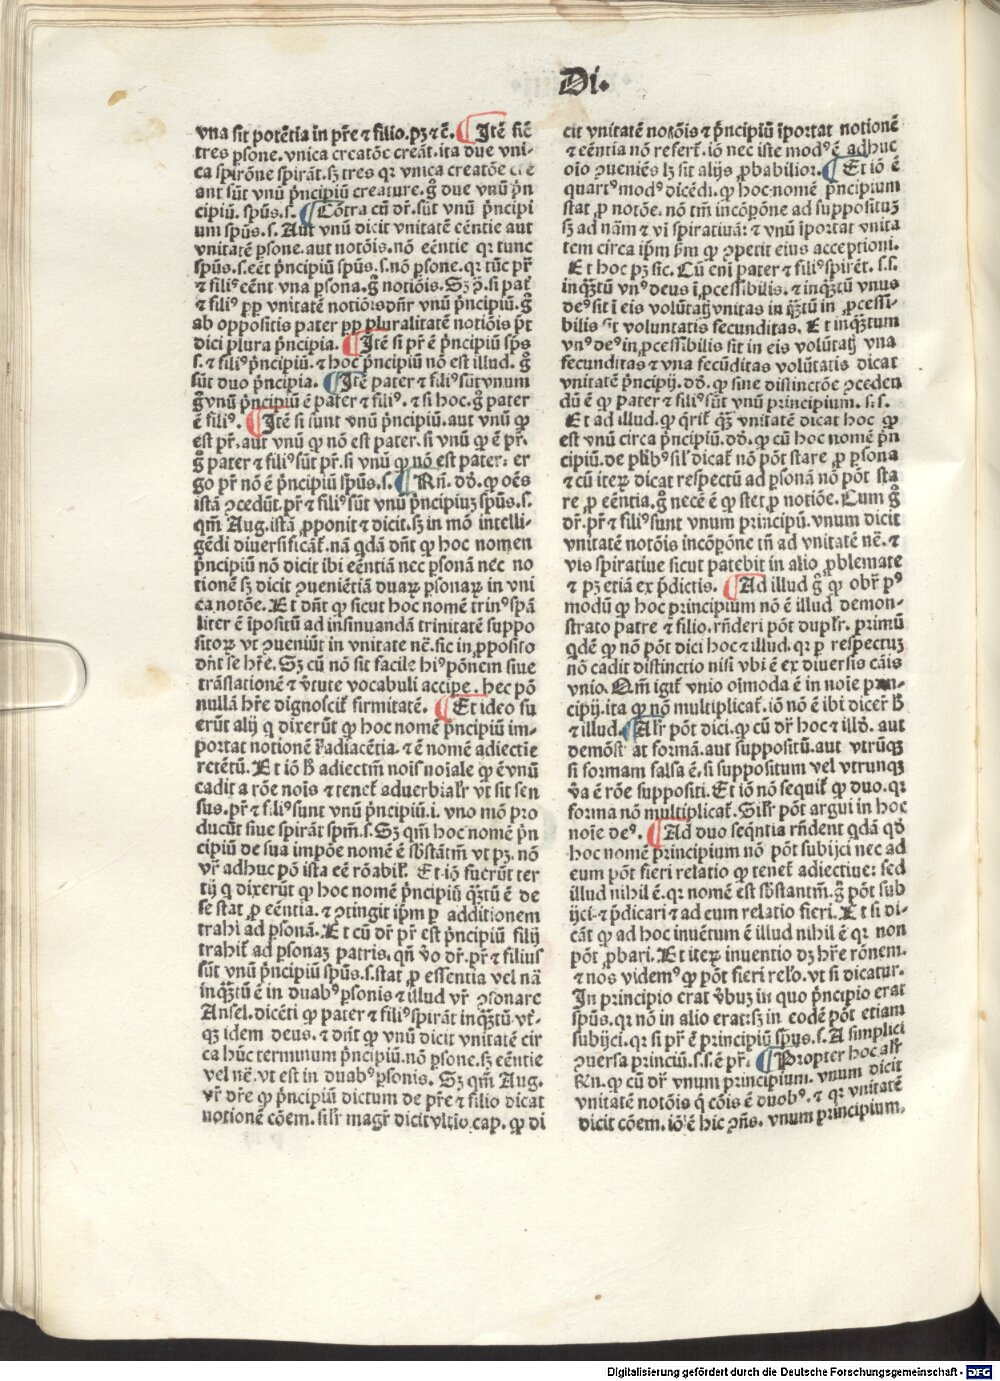 Di.
vna sit potẽtia in pr̃e ⁊ filio.pꝫ ⁊ c̃. ¶ Itẽ sic̃
tres ꝑsone.vnica creatõe creãt.ita due vni-
ca spirõne spirãt.sꝫ tres qꝛ vnica creatõe cre
ant sũt vnũ p̃ncipiũ creature.g̃ due vnũ p̃n
cipiũ. spũs.s. ¶ Cõtra cũ dr̃.sũt vnũ p̃ncipi
um spũs.s. Aut vnũ dicit vnitatẽ eẽntie aut
vnitatẽ ꝑsone.aut notõis.nõ eẽntie qꝛ tunc
spũs.s.eẽt p̃ncipiũ spũs.s.nõ ꝑsone.qꝛ tũc pr̃
⁊ filiꝰ eẽnt vna ꝑsona.g̃ notiõis. Sꝫ ꝯ̃.si pat̃
⁊ filiꝰ ꝓp̃ vnitatẽ notiõis dñr vnũ p̃ncipiũ.g̃
ab oppositis pater ꝓp̃ pluralitatẽ notiõis p̃t
dici plura p̃ncipia. ¶ Itẽ si pr̃ ẽ p̃ncipiũ sp̃s
s. ⁊ filiꝰ p̃ncipiũ. ⁊ hoc p̃ncipiũ nõ est illud. g̃
sũt duo p̃ncipia. ¶ Itẽ pater ⁊ filiꝰ sũt vnum
g̃ vnũ p̃ncipiũ ẽ pater ⁊ filiꝰ. ⁊ si hoc.g̃ pater
ẽ filiꝰ. ¶ Itẽ si sunt vnũ p̃ncipiũ.aut vnũ ꝙ
est pr̃.aut vnũ ꝙ nõ est pater.si vnũ ꝙ ẽ pr̃.
g̃ pater ⁊ filiꝰ sũt pr̃.si vnũ ꝙ nõ est pater. er
go pr̃ nõ ẽ p̃ncipiũ spũs.s. ¶ Rñ. dõ. ꝙ oẽs
istã ꝯcedũt.pr̃ ⁊ filiꝰ sũt vnũ p̃ncipiuꝫ spũs.s.
qm̃ Aug.istã ꝓponit ⁊ dicit.sꝫ in mõ intelli-
gẽdi diuersificãt̃.nã qdã dñt ꝙ hoc nomen
p̃ncipiũ nõ dicit ibi eẽntiã nec ꝑsonã nec no
tionẽ sꝫ dicit ꝯueniẽtiã duaꝝ ꝑsonaꝝ in vni
ca notõe. Et dñt ꝙ sicut hoc nomẽ trinꝰ spã
liter ẽ ĩpositũ ad insinuandã trinitatẽ suppo
sitoꝝ vt ꝯueniũt in vnitate nẽ.sic in ꝓposito
dñt se hr̃e. Sꝫ cũ nõ sit facile hiꝰ põnem siue
trãslationẽ ⁊ v̓tute vocabuli accipe. hec põ
nullã hr̃e dignoscit̃ firmitatẽ. ¶ Et ideo fu
erũt alij q dixerũt ꝙ hoc nomẽ p̃ncipiũ im-
portat notionẽ ꝛ̃ adiacẽtia. ⁊ ẽ nomẽ adiectie
retẽtũ. Et iõ h̃ adiectm̃ nois noiale ꝙ ẽ vnũ
cadit a rõe nois ⁊ tenet̃ aduerbialr̃ vt sit sen
sus.pr̃ ⁊ filiꝰ sunt vnũ p̃ncipiũ.i. vno mõ pro
ducũt siue spirãt spm̃.s. Sꝫ qm̃ hoc nomẽ p̃n
cipiũ de sua impõe nomẽ ẽ sb̃stãtm̃ vt pꝫ. nõ
vr̃ adhuc põ ista eẽ rõabil̃. Et iõ fuerũt ter
tij q dixerũt ꝙ hoc nomẽ p̃ncipiũ q̃ꝫtũ ẽ de
se stat ꝓ eẽntia. ⁊ ꝯtingit ip̃m ꝑ additionem
trahi ad ꝑsonã. Et cũ dr̃ pr̃ est p̃ncipiũ filij
trahit̃ ad ꝑsonaꝫ patris. qñ v̓o dr̃.pr̃ ⁊ filius
sũt vnũ p̃ncipiũ spũs.s.stat ꝓ essentia vel nã
inq̃ꝫtũ ẽ in duabꝰ ꝑsonis ⁊ illud vr̃ ꝯsonare
Ansel.dicẽti ꝙ pater ⁊ filiꝰ spirãt inq̃ꝫtũ vt̓-
qꝫ idem deus. ⁊ dñt ꝙ vnũ dicit vnitatẽ cir
ca hũc terminum p̃ncipiũ.nõ ꝑsone.sꝫ eẽntie
vel nẽ.vt est in duabꝰ ꝑsonis. Sꝫ qm̃ Aug.
vr̃ dr̃e ꝙ p̃ncipiũ dictum de pr̃e ⁊ filio dicat
notionẽ cõem.sil̃r magr̃ dicit vltio.cap. ꝙ di
cit vnitatẽ notõis ⁊ p̃ncipiũ ĩportat notionẽ
⁊ eẽntia nõ refert̃.iõ nec iste modꝰ ẽ adhuc
oĩo ꝯueniẽs lꝫ sit alijs ꝓbabilior. ¶ Et iõ ẽ
quartꝰ modꝰ dicẽdi.ꝙ hoc nomẽ p̃ncipium
stat ꝓ notõe. nõ tm̃ incõpõne ad suppositũ
sꝫ ad nãm ⁊ vĩ spiratiuã: ⁊ vnũ ĩportat vnita
tem circa ip̃m ꝓut ꝯpetit eius acceptioni.
Et hoc pꝫ sic. Cũ eni pater ⁊ filiꝰ spirẽt. s.s.
inq̃ꝫtũ vnꝰ deus ĩ ꝓcessibilis. ⁊ inq̃ꝫtũ vnus
deꝰ sit ĩ eis volũtatꝫ vnitas in q̃ꝫtũ in ꝓcessi
bilis sit voluntatis fecunditas. Et inq̃ꝫtum
vnꝰ deꝰ in ꝓcessibilis sit in eis volũtatꝫ vna
fecunditas ⁊ vna fecũditas volũtatis dicat
vnitatẽ p̃ncipij.dõ. ꝙ sine distinctõe ꝯceden
dũ ẽ ꝙ pater ⁊ filiꝰ sũt vnũ principium. s.s.
Et ad illud.ꝙ q̃rit̃ qꝫ vnitatẽ dicat hoc ꝙ
est vnũ circa p̃ncipiũ.dõ. ꝙ cũ hoc nomẽ p̃n
cipiũ.de plibꝰ sil̃ dicat̃ nõ põt stare ꝓ ꝑsona
⁊ cũ iteꝝ dicat respectũ ad ꝑsonã nõ põt sta
re ꝓ eẽntia.g̃ necẽ ẽ ꝙ stet ꝓ notiõe. Cum g̃
dr̃.pr̃ ⁊ filiꝰ sunt vnum principiũ.vnum dicit
vnitatẽ notõis incõpõne tñ ad vnitatẽ nẽ. ⁊
vis spiratiue sicut patebit in alio ꝓblemate
⁊ pꝫ etiã ex p̃dictis. ¶ Ad illud g̃ ꝙ obr̃ pꝰ
modũ ꝙ hoc principium nõ ẽ illud demon-
strato patre ⁊ filio.rñderi põt duplr̃. primũ
qdẽ ꝙ nõ põt dici hoc ⁊ illud.qꝛ ꝑ respectuꝫ
nõ cadit distinctio nisi vbi ẽ ex diuersis cãis
vnio. Qm̃ igit̃ vnio oĩmoda ẽ in noĩe prin-
cipij.ita ꝙ nõ multiplicat̃.iõ nõ ẽ ibi dicer̃ h̃
⁊ illud. ¶ Al̃r põt dici.ꝙ cũ dr̃ hoc ⁊ illd̃. aut
demõstrat formã.aut suppositũ.aut vtrũqꝫ
si formam falsa ẽ.si suppositum vel vtrunqꝫ
v̓a ẽ rõe suppositi. Et iõ nõ sequit̃ ꝙ duo.qꝛ
forma nõ multiplicat̃. Sil̃r põt argui in hoc
noĩe deꝰ. ¶ Ad duo seqñtia rñdent qdã qd̓
hoc nomẽ principium nõ põt subijci nec ad
eum põt fieri relatio ꝙ tenet̃ adiectiue: sed
illud nihil ẽ.qꝛ nomẽ est sb̃stantm̃.g̃ põt sub
ijci ⁊ p̃dicari ⁊ ad eum relatio fieri. Et si di-
cãt ꝙ ad hoc inuẽtum ẽ illud nihil ẽ qꝛ non
põt ꝓbari. Et iteꝝ inuentio dꝫ hr̃e rõnem.
⁊ nos videmꝰ ꝙ põt fieri rel̃o. vt si dicatur.
In principio erat v̓buꝫ in quo p̃ncipio erat
spũs.qꝛ nõ in alio erat:sꝫ in eodẽ põt etiam
subijci.qꝛ si pr̃ ẽ principiũ spũs.s. A simplici
ꝯuersa princiũ.s.s.ẽ pr̃. ¶ Propter hoc al̃r
Rñ.ꝙ cũ dr̃ vnum principium. vnum dicit
vnitatẽ notõis q̃ cõis ẽ duobꝰ. ⁊ qꝛ vnitatẽ
dicit cõem.iõ ẽ hic ꝯñs. vnum principium,
Digitalisierung gefördert durch die Deutsche Forschungsgemeinschaft - DFG